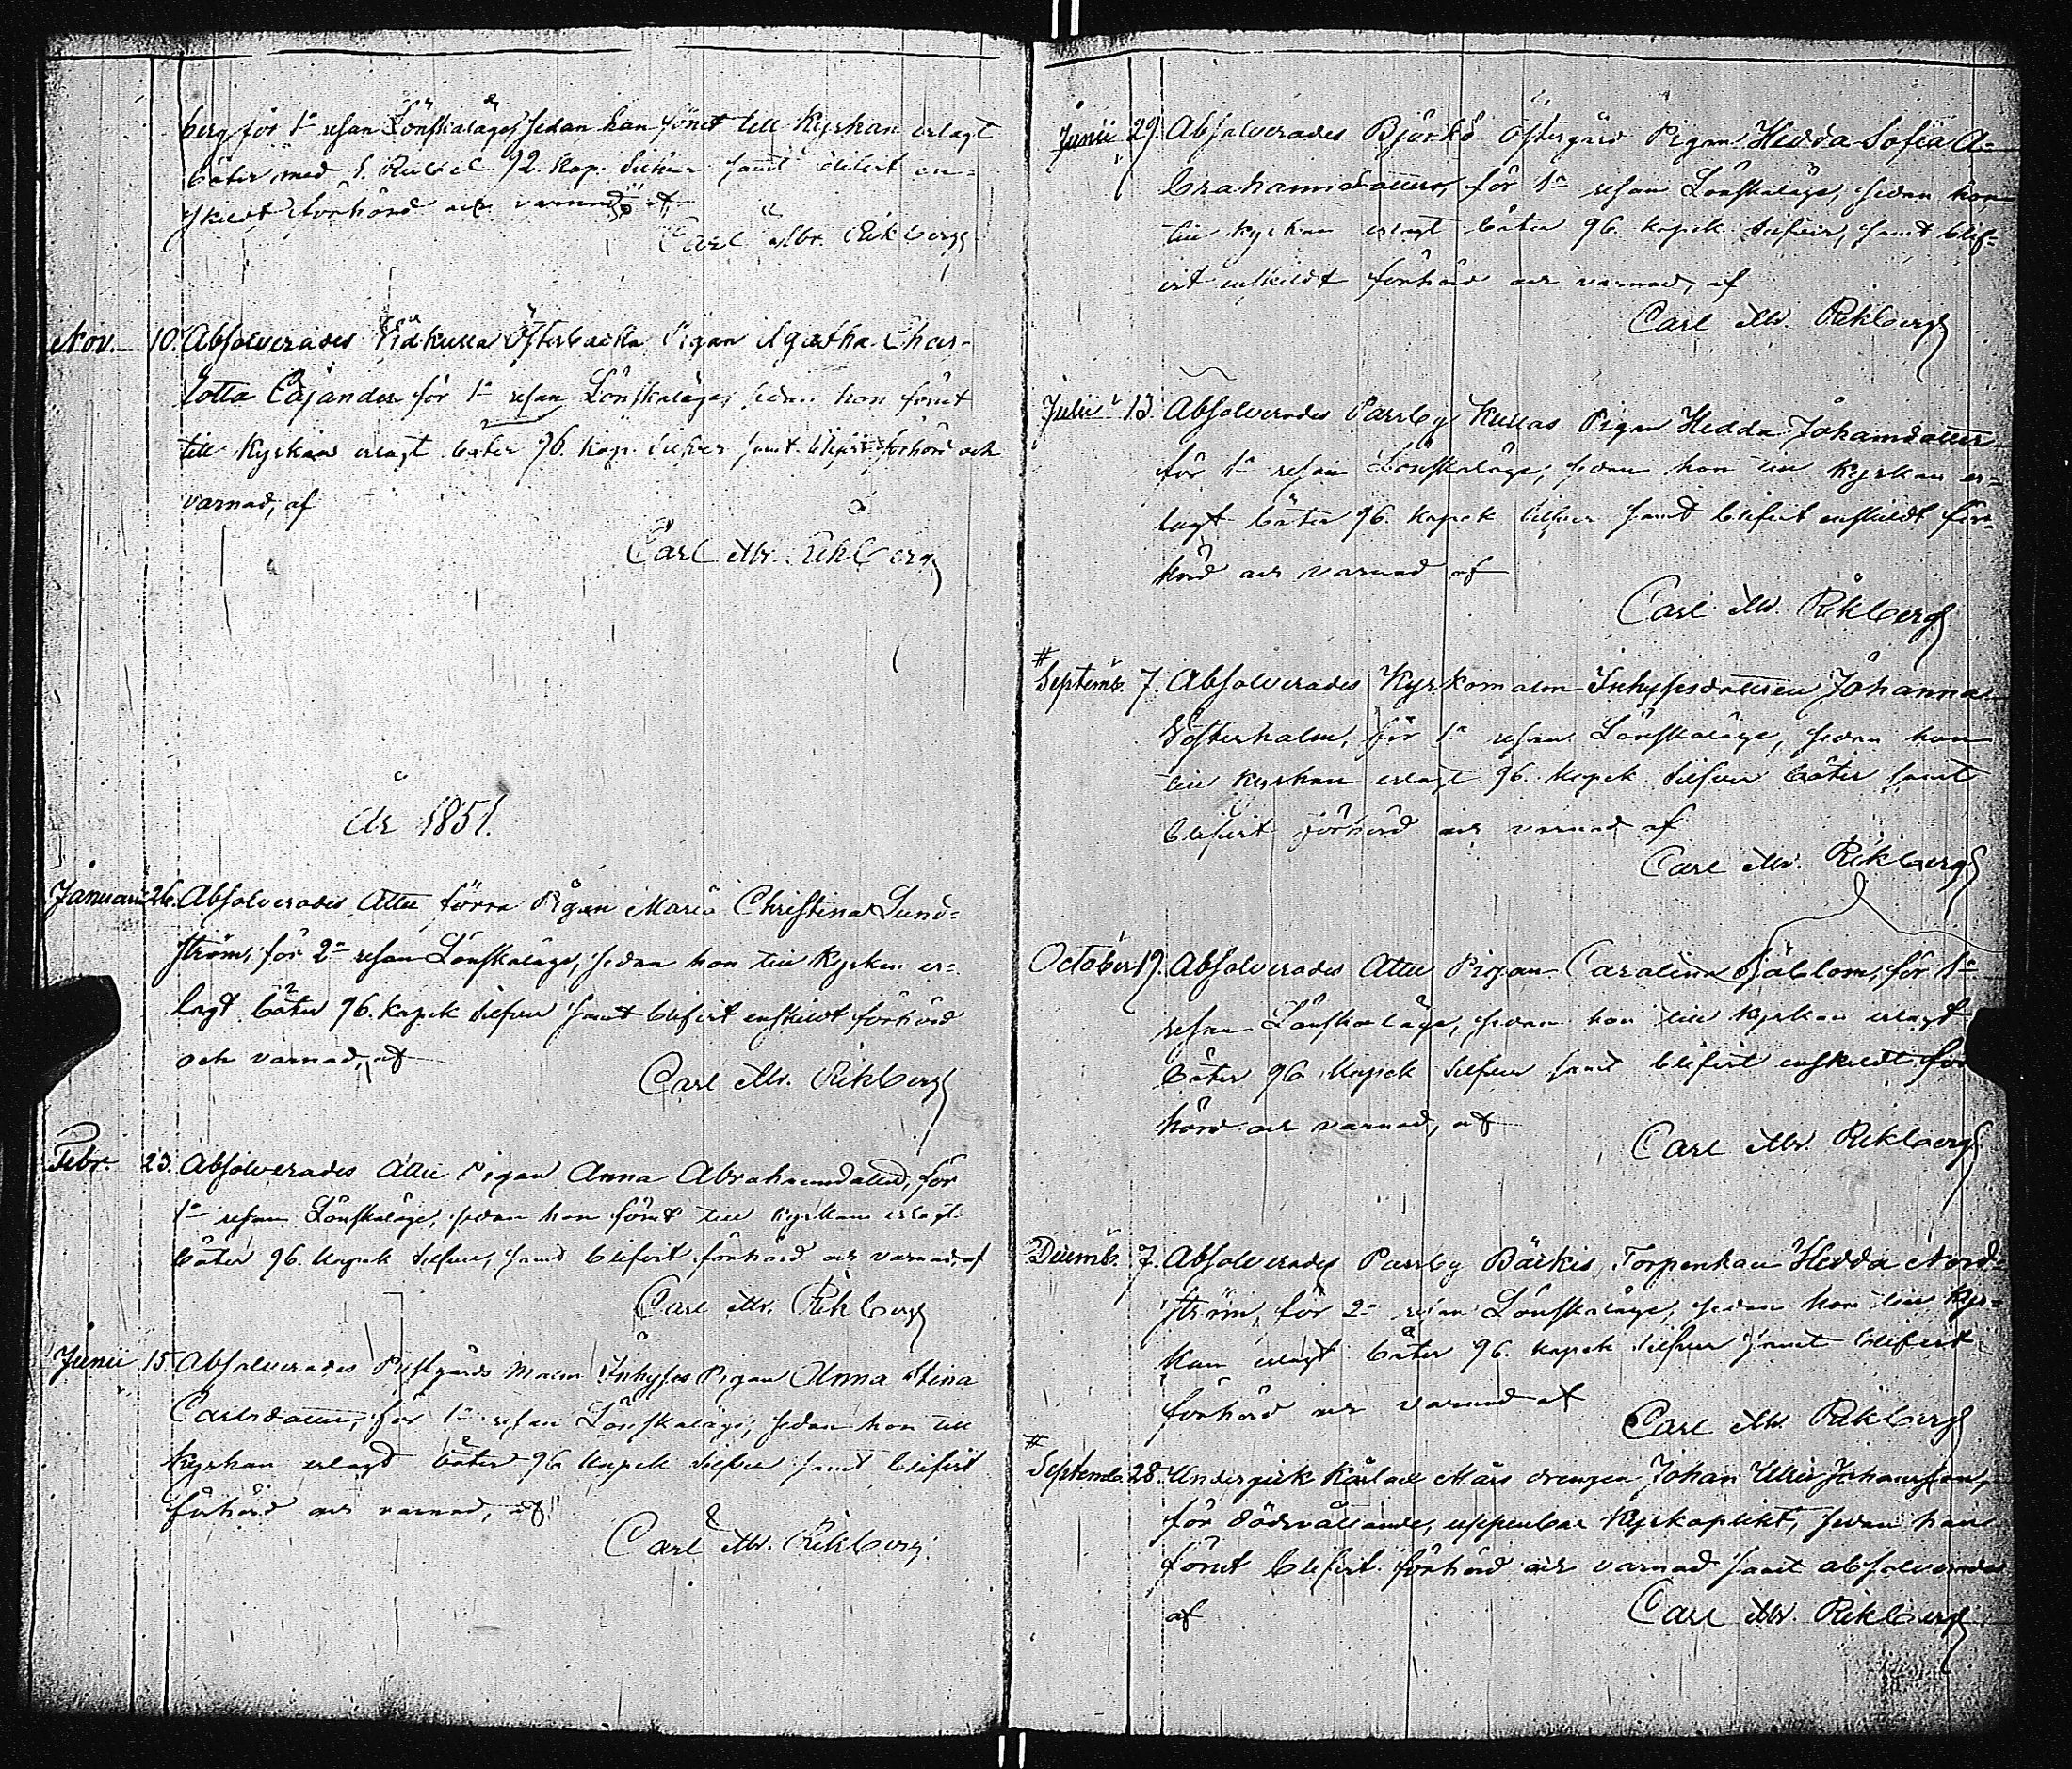 berg för 1a resan Lönskaläge, sedan han förut till Kyrkan erlagt
böter med 1. Rubel 92. Kop. Silfver samt blifvit en=
skildt förhörd och varnad, af
Carl Mr. Rikberg
Nov. 10. Absolverades Österbacka Pigan Agatha Char-
lotta Cajander för 1a resan Lönskaläge, sedan hon förut
till Kyrkan erlagt böter 96. Kop. Silfver samt blifvit förhörd och
varnad, af
Carl Mr. Rikberg
År 1851.
Januarii 26. Absolverades Attu förra Pigan Maria Christina Lund=
ström, för 2a resan Lönskaläge, sedan hon till Kyrkan er=
lagt böter 96. Kopek Silfver samt blifvit enskildt förhörd
och varnad, af
Carl Mr. Rikberg
Febr. 23. Absolverades Attu Pigan Anna Abrahamsdotter, för
1a resan Lönskaläge, sedan hon förut till Kyrkan erlagt
böter 96. Kopek Silfver, samt blifvit förhörd och varnad, af
Carl Mr. Rikberg
Junii 15. Absolverades Prestgårds Malm Inhyses Pigan Anna Stina
Carlsdotter, för 1a resan Lönskaläge, sedan hon till
Kyrkan erlagt böter 96 Kopek Silfver samt blifvit
förhörd och varnad, af
Carl Mr. Rikberg
Junii 29. Absolverades Björkö Östergård Pigan Hedda Sofia A=
brahamsdotter, för 1a resan Lönskaläge, sedan hon
till Kyrkan erlagt böter 96. Kopek Silfver, samt blif=
vit enskildt förhörd och varnad, af
Carl Mr. Rikberg
Julii 13. Absolverades Parrby Kullas Pigan Hedda Johansdotter
för 1a resan Lönskaläge, sedan hon till Kyrkan er=
lagt böter 96. Kopek Silfver samt blifvit enskildt för=
hörd och varnad af
Carl Mr. Rikberg
# Septemb. 7. Absolverades Kyrkomalm Inhysesdottren Johanna
Vösterholm, för 1a resan Lönskaläge, sedan hon
till Kyrkan erlagt 96. Kopek Silfver böter samt
blifvit förhörd och varnad af
Carl Mr. Rikberg
October 19. Absolverades Attu Pigan Carolina Sjöblom, för 1a
resan Lönskaläge, sedan hon till Kyrkan erlagt
böter 96 Kopek Silfver samt blifvit enskildt för
hörd och varnad, af
Carl Mr. Rikberg
Decemb. 7. Absolverades Parrby Bäckis Torpenkan Hedda Nord=
ström, för 2a resan Lönskaläge, sedan hon till Kyr=
kan erlagt böter 96. Kopek Silfver samt blifvit
förhörd och varnad af
Carl Mr. Rikberg
# Septemb. 28. Undergick Mårs drengen Johan Ulric Johansson,
för dödsvållande, uppenbar Kyrkoplikt, sedan han
förut blifvit förhörd och varnad samt absolverades
af
Carl Mr. Rikberg